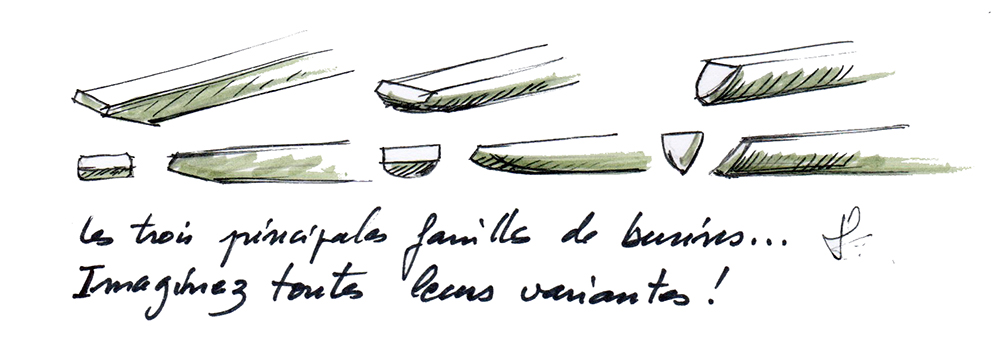 Les trois principales familles de burins...
Imaginez toutes leurs variantes !